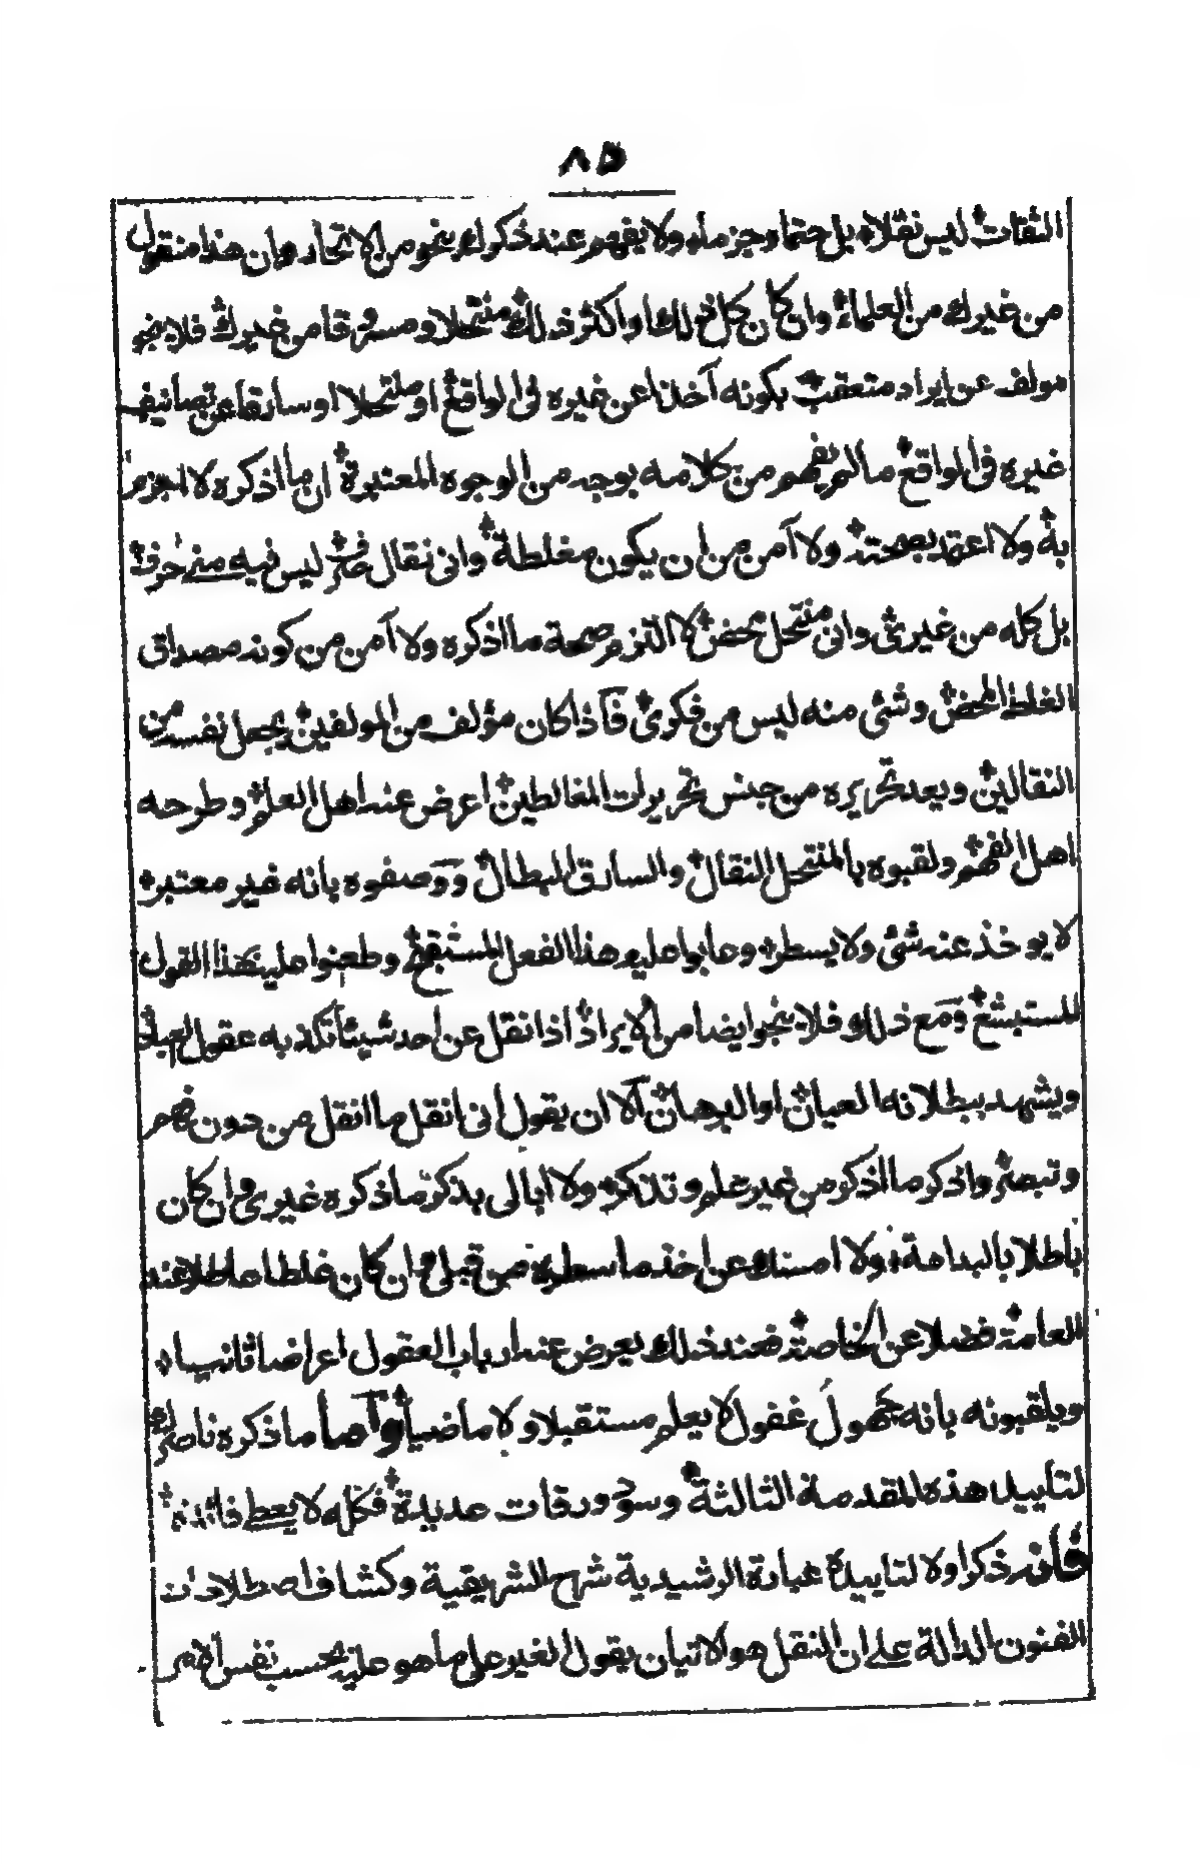 ٨٥
الثقات ليس نقلا بل حتما وجزما ولا يفهم عند ذكرك بنحو من الاتحاد وان هذا منقول
من غيرك من العلماء وان كان كل ذلك او اكثر ذلك منتحلا ومسروقا من غيرك فلا ينجو
مولف عن ايراد متعقب بكونه آخذا عن غيره فى الواقع او منتحلا او سارقا عن تصانيف
غيره فى الواقع ما لم يفهم من كلامه بوجه من الوجوه المعتبرة ان ما اذكره لا اجزم
به ولا اعتقد بصحته ولا آمن من ان يكون مغلطة وانى نقال ليس فيه منى حرف
بل كله من غيرى وانى منتحل محض لا التزم صحة ما اذكره ولا آمن من كونه مصداق
الغلط المحض وشئ منه ليس من فكرى فاذا كان مؤلف من المولفين يجعل نفسه من
النقالين ويعد تحريره من جنس تحريرات المغالطين اعرض عنه اهل العلم وطرحه
اهل الفهم ولقبوه بالمنتحل النقال والسارق البطال ووصفوه بانه غير معتبر
لا يوخذ عنه شئ ولا يسطر وعابوا عليه هذا الفعل المستقبح وطعنوا عليه بهذا القول
المستبشع ومع ذلك فلا ينجو ايضا من الايراد اذا نقل عن احد شيئا تكذبه عقول العباد
ويشهد ببطلانه العيان او البرهان الا ان يقول انى انقل ما انقل من دون فهم
وتبصر واذكر ما اذكر من غير علم وتذكر ولا ابالى بذكر ما ذكره غيرى وان كان
باطلا بالبداهة ولا امسك عن اخذ ما سطره من قبلى وان كان غلطا باطلا عند
العامة فضلا عن الخاصة فعند ذلك يعرض عنه ارباب العقول اعراضا
ويلقبونه بانه جهول غفول لا يعلم مستقبلا ولا ماضيا واما ما ذكره ناصرك
لتاييد هذه المقدمة الثالثة وسود ورقات عديدة فكله لا يعطى فائدة
فانه ذكر اولا لتاييده عبارة الرشيدية شرح الشريفية وكشاف اصطلاحات
الفنون الدالة على ان النقل هو الاتيان بقول الغير على ما هو عليه بحسب نفس الامر